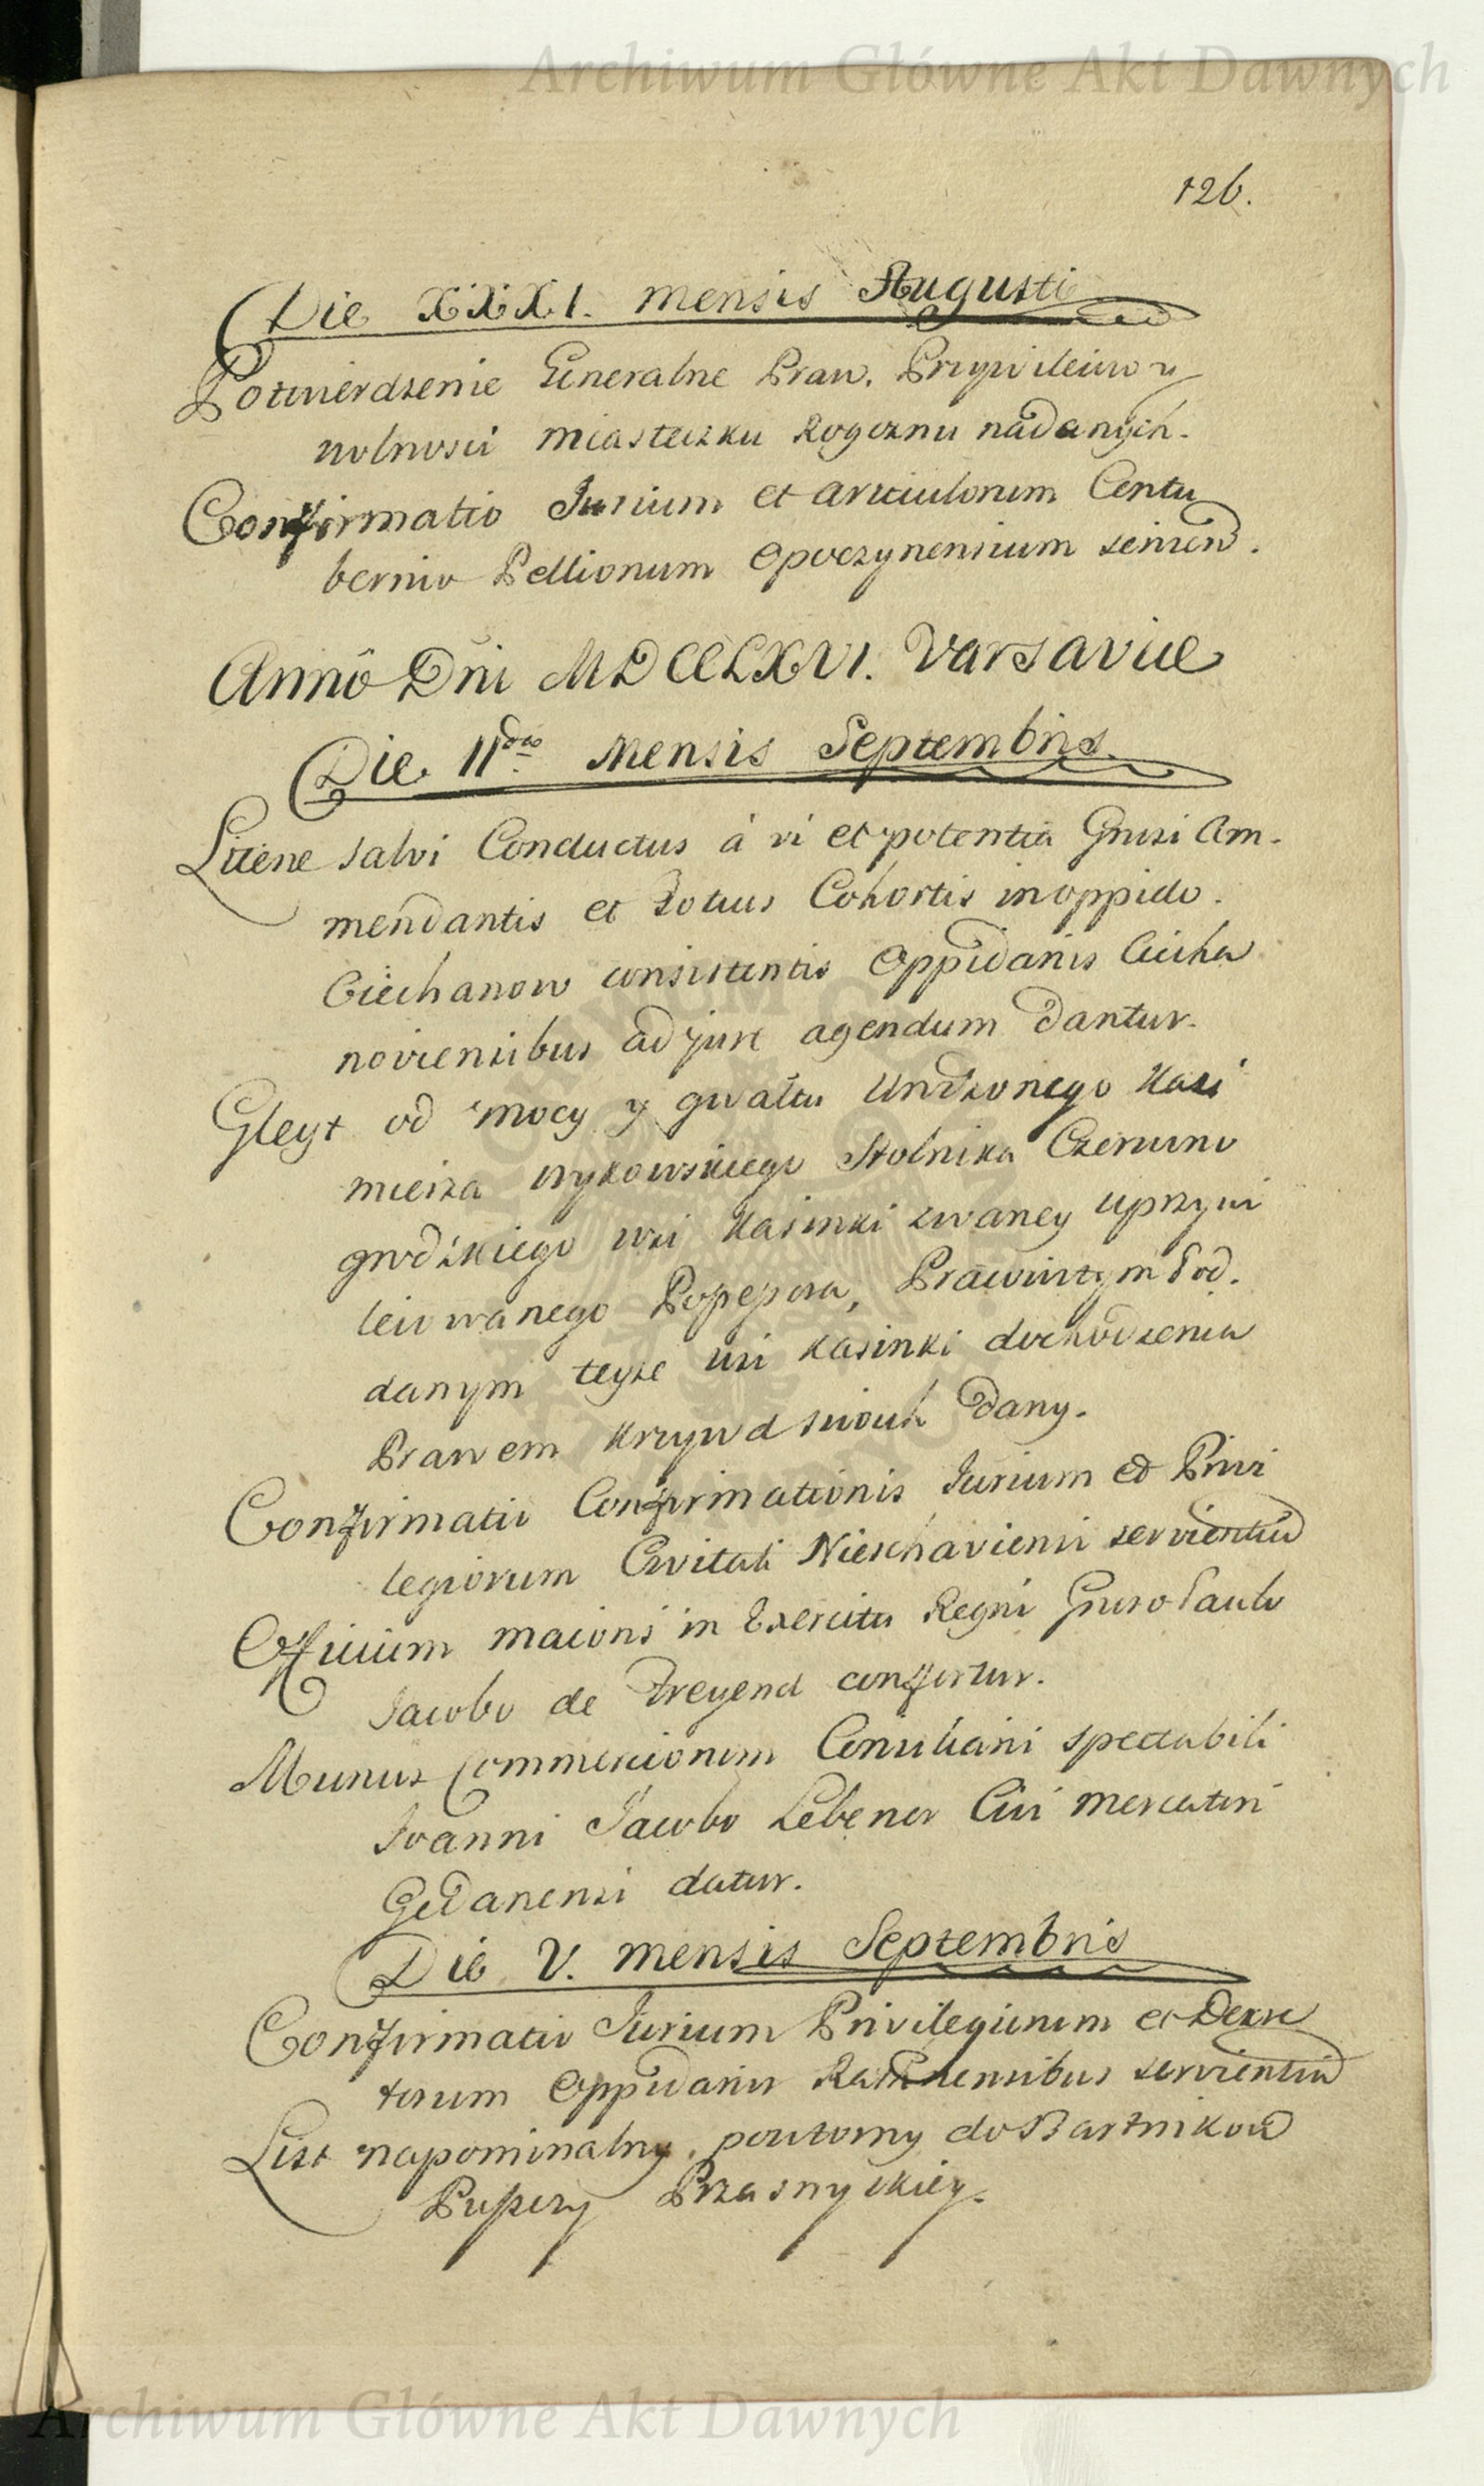 Archiwum Główne Akt Dawnych
126.
Die XXXI. mensis Augusti
Potwierdzenie Generalne Praw, Przywileiow y
wolnosci miasteczku Rogoznu nadanych.
Confirmatio Jurium et articulorum Contu
bernio Pellionum Opoczynensium servien.
Anno Dni MDCCLXVI. Varsaviae
Die IIda Mensis Septembris
Literae salvi Conductus à vi et potentia Gnrosi Am-
mendantis et Totius Cohortis in oppido
Ciechanow consistentis Oppidanis Ciecha
noviensibus ad jure agendum dantur.
Gleyt od mocy y gwałtu Urodzonego Kazi
mierza Wykowskiego Stolnika Czerwno
grodzkiego wsi Kasinki zwaney uprzywi
leiowanego Possessora, Pracowitym Pod.
danym teyże wsi Kasinki dochodzenia
Prawem krzywd swoich dany.
Confirmatio Confirmationis Jurium et Privi
legiorum Civitati Nieschaviensi servientiu
Officium maioris in Exercitu Regni Gnroso Paulo
Jacobo de Treyend confertur.
Munus Commerciorum Consiliarii spectabili
Joanni Jacobo Lebener Civi mercatori
Gedanensi datur.
Die V. mensis Septembris
Confirmatio Jurium Privilegiorum et Decre
torum Oppidanis servientiu
List napominalny powtorny do Bartnikow
Puszczy Przasnyskiey.
Archiwum Główne Akt Dawnych